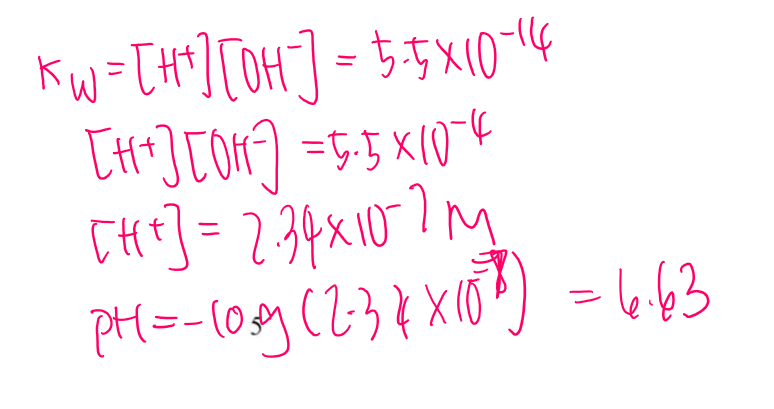 Kw=[H+][OH-] = 5.5×10^-14
[H+][OH-] =5.5×10^-4
[H+]= 2.34×10^-7 M
pH=-log(2.34×10^-7) = 6.63
5